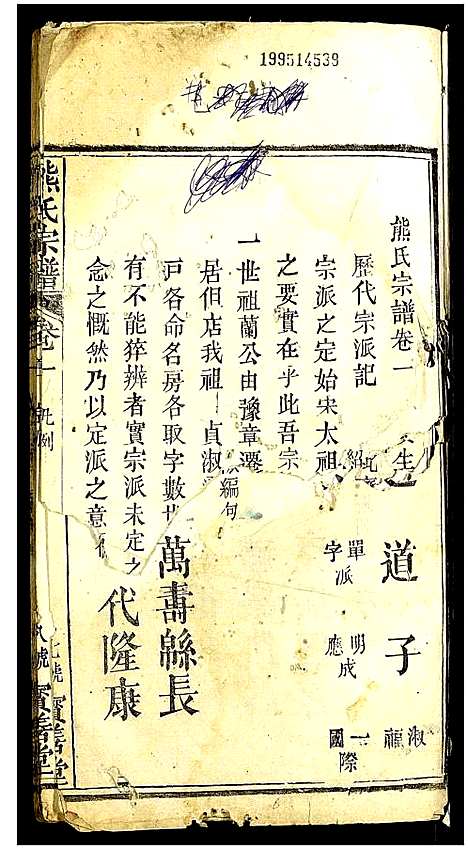 199514539
熊氏宗譜卷一
歷代宗派記
宗派之定始宋太祖
之要實在乎此吾宗
一世祖蘭公由豫章遷
居但店我祖貞淑
戸各命名房各取字數世
有不能猝辨者實宗派未定之
念之慨然乃以定派之意
生
道子
淑龍
單派字
明成應
一國際
編句
萬壽縣長
代隆康
熊氏宗譜
卷一
凡例
號
寶善堂
七號
寶善堂